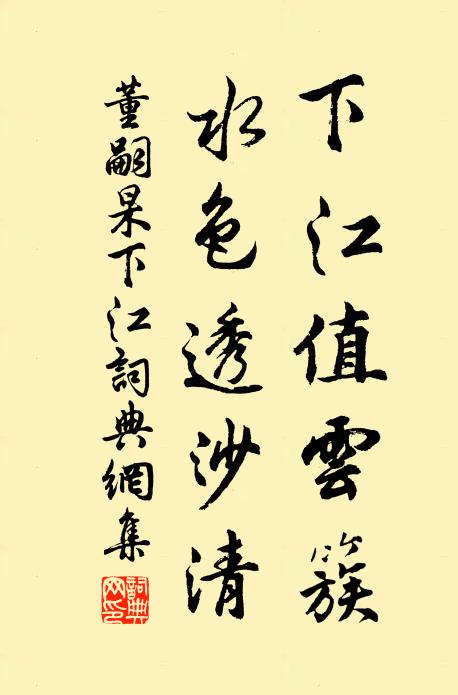 下江值雲簇
水色透沙清
董嗣杲下江詞典網集
詞典网印